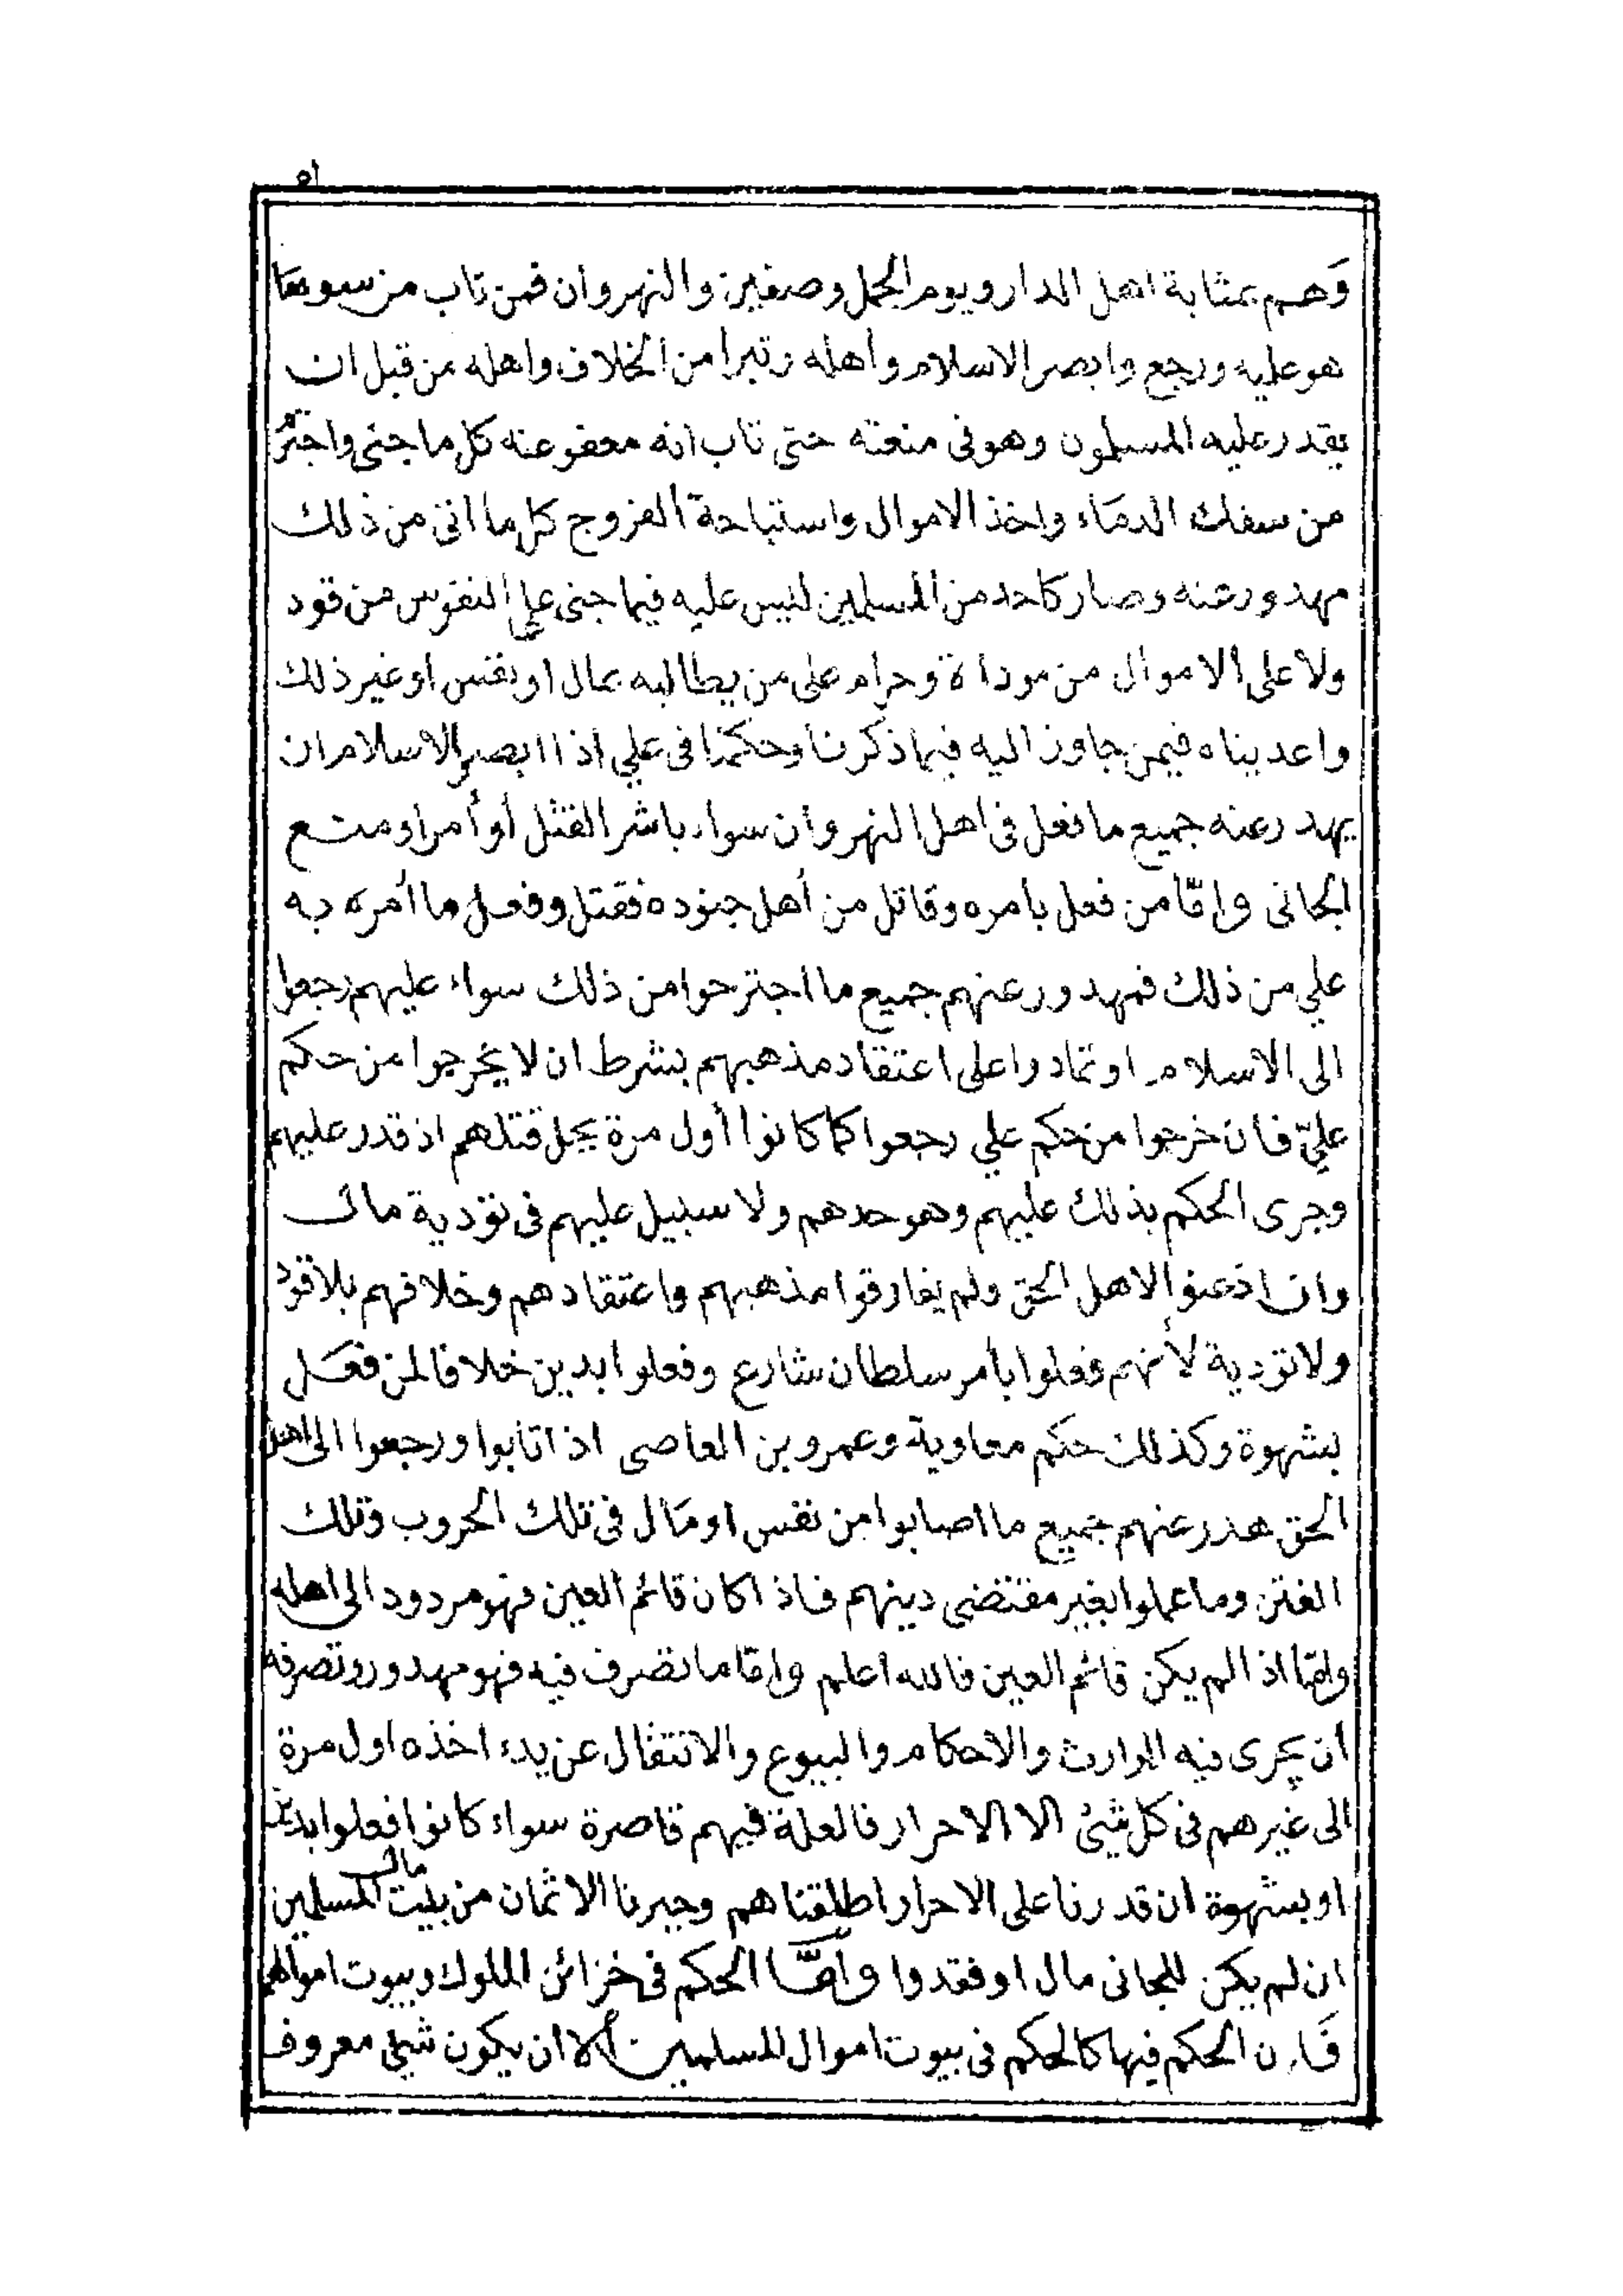 ٥١
وهم بمثابة اهل الدار ويوم الجمل وصفين والنهروان فمن تاب من سوء ما
هو عليه ورجع وابصر الاسلام واهله وتبرا من الخلاف واهله من قبل ان
يقدر عليه المسلمون وهو في منعته حتى تاب انه معفو عنه كل ما جنى واجترم
من سفك الدماء واخذ الاموال واستباحة الفروج كل ما اتى من ذلك
مهدور عنه وصار كاحد من المسلمين ليس عليه فيما جنى على النفوس من قود
ولا على الاموال من موداة وحرام على من يطالبه بمال او نفس او غير ذلك
واعديناه فيمن جاوز اليه فيما ذكرنا وحكمنا في علي اذا ابصر الاسلام ان
يهدر عنه جميع ما فعل في اهل النهروان سواء باشر القتل أو أمر او منع
الجاني وامّا من فعل بامره وقاتل من أهل جنوده فقتل وفعل ما أمره به
علي من ذلك فمهدور عنهم جميع ما اجترحوا من ذلك سواء عليهم رجعوا
الى الاسلام او تمادوا على اعتقاد مذهبهم بشرط ان لا يخرجوا من حكم
عليّ فان خرجوا من حكم علي رجعوا كما كانوا أول مرة يحل قتلهم اذ قدر عليهم
وجرى الحكم بذلك عليهم وهو حدهم ولا سبيل عليهم في تؤدية مال
وان اذعنوا لاهل الحق ولم يفارقوا مذهبهم واعتقادهم وخلافهم بلا قود
ولا تؤدية لأنهم فعلوا بأمر سلطان شارع وفعلوا بدين خلافا لمن فعل
بشهوة وكذلك حكم معاوية وعمرو بن العاصى اذا تابوا ورجعوا الى اهل
الحق هدر عنهم جميع ما اصابوا من نفس او مال في تلك الحروب وتلك
الفتن وما عملوا بغير مقتضى دينهم فاذا كان قائم العين فهو مردود الى اهله
وامّا اذا لم يكن قائم العين فالله اعلم وامّا ما تصرف فيه فهو مهدور وتصرفه
ان يجرى فيه الموارث والاحكام والبيوع والانتقال عن يد اخذه اول مرة
الى غيرهم في كل شيئ الا الاحرار فالعلة فيهم قاصرة سواء كانوا فعلوا بدين
او بشهوة ان قدرنا على الاحرار اطلقناهم وجبرنا الاثمان من بيت مال المسلمين
ان لم يكن للجاني مال او فقدوا وأمّا الحكم في خزائن الملوك وبيوت اموالهم
فان الحكم فيها كالحكم في بيوت اموال المسلمين إلا ان يكون شئ معروف